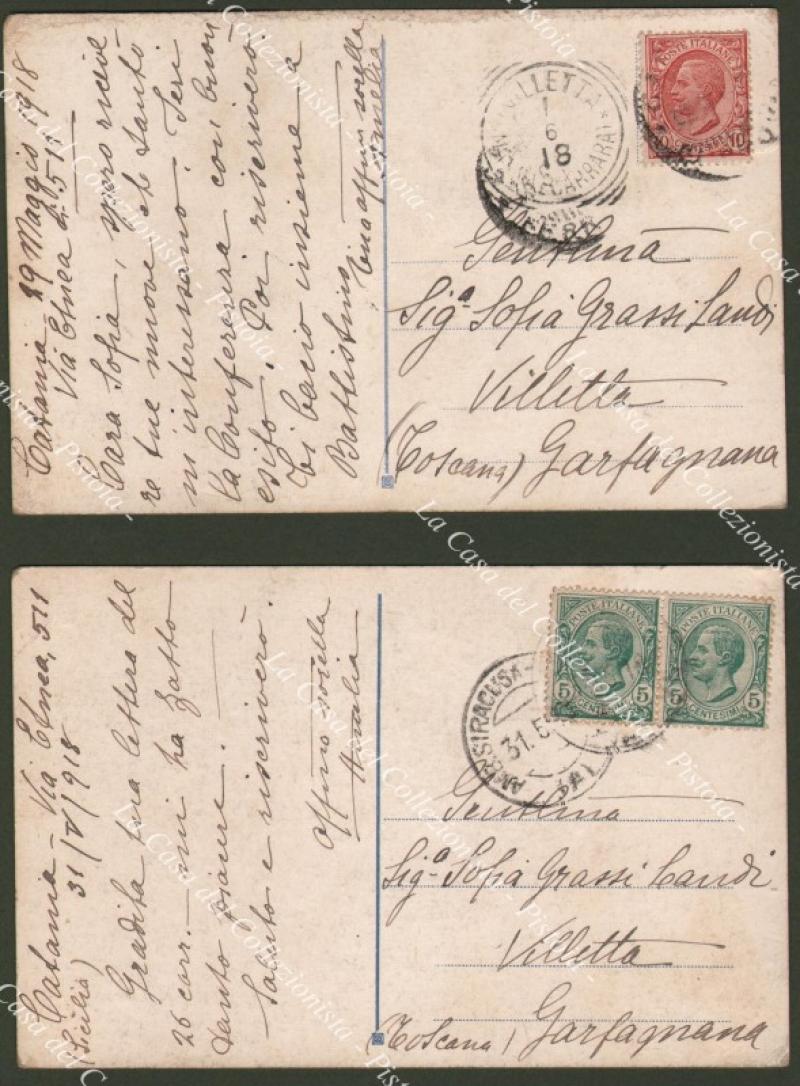 Catania 29 Maggio 1918
Via Etnea 4. 511
Cara Sofia, spero riceve
re tue nuove che tanto
mi interessano. Ieri
la Conferenza con buon
esito. Poi riscriverò
Ti bacio insieme
Battistino
tua affma sorella
Amelia
VILLETTA
1
6
18
POSTE ITALIANE
10
Gentilma
Sigª Sofia Grassi Landi
Villetta
(Toscana) Garfagnana
Catania - Via Etnea, 511
(Sicilia) 31/V/918
Gradita tua lettera del
26 corr. - mi ha fatto
tanto piacere.
Saluto e riscriverò.
Affma sorella
Amalia
AMB. SIRACUSA-
31.5
POSTE ITALIANE
5 5
CENTESIMI
POSTE ITALIANE
5 5
CENTESIMI
Gentilma
Sigª Sofia Grassi Landi
Villetta
(Toscana) Garfagnana
La Casa del Collezionista - Pistoia -